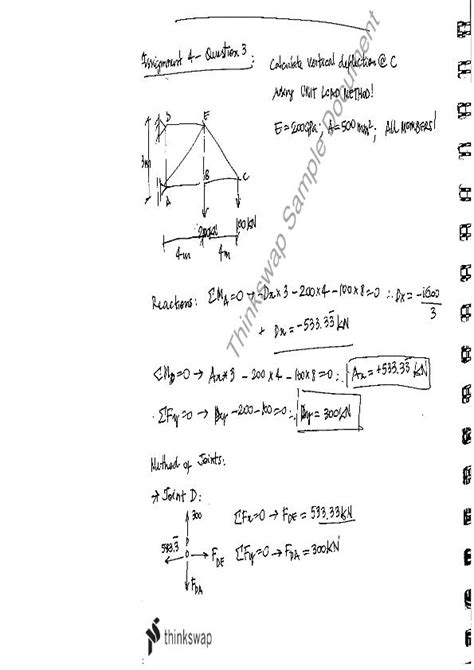 Assignment 4 – Question 3: Calculate vertical deflection @ C
using UNIT LOAD METHOD!
E=200GPa; A=500mm²; ALL MEMBERS!
D E
3m
A B C
200kN 100kN
4m 4m
Reactions: ΣM_A=0 → -Dx*3 -200*4 -100*8=0 ∴ Dx = -1600/3
Dx = -533.33 kN
ΣM_D=0 → Ax*3 -200*4 -100*8=0 ∴ Ax=+533.33 kN
ΣFy=0 → Dy -200-100=0 ∴ Dy=300kN
Method of Joints:
→ Joint D:
300
533.3 D F_DE
F_DA
ΣFx=0 → F_DE = 533.33kN
ΣFy=0 → F_DA = 300kN
Thinkswap Sample Document
thinkswap